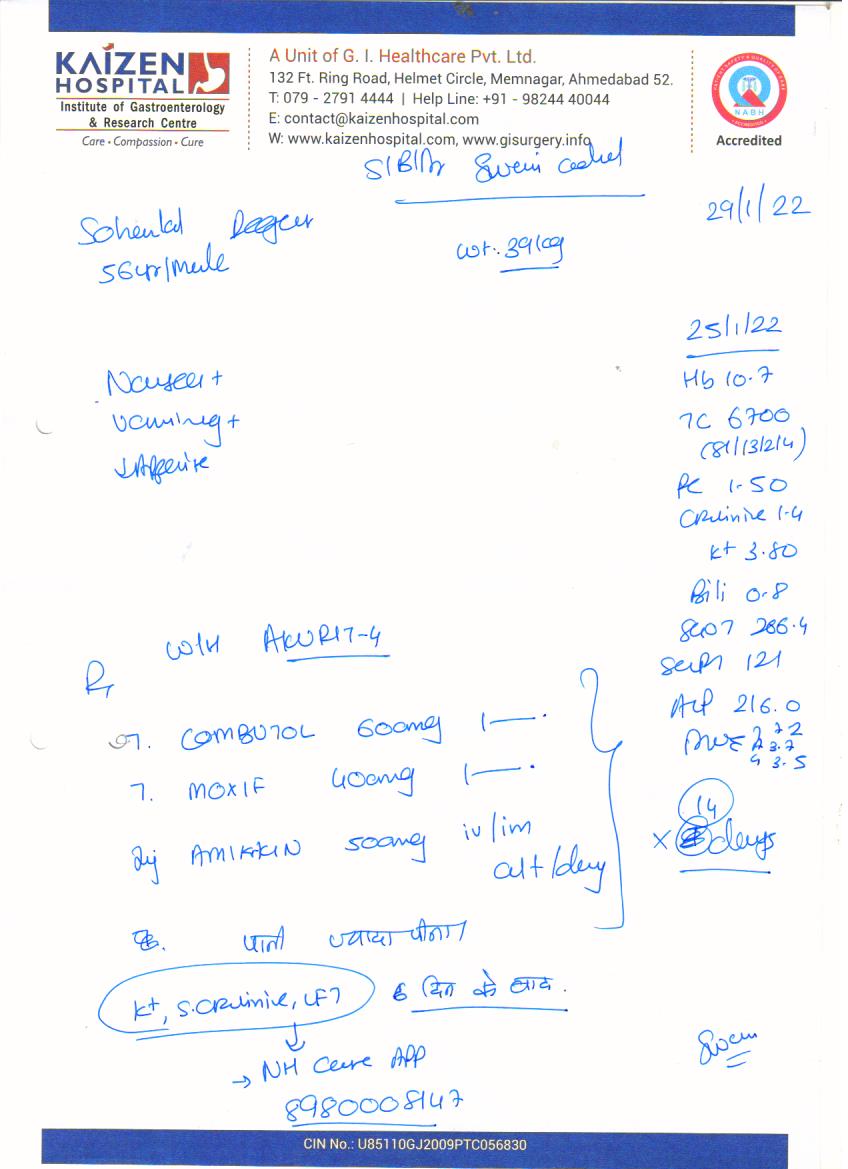 KAIZEN
HOSPITAL
Institute of Gastroenterology
& Research Centre
Care • Compassion • Cure
A Unit of G. I. Healthcare Pvt. Ltd.
132 Ft. Ring Road, Helmet Circle, Memnagar, Ahmedabad 52.
T: 079 - 2791 4444 | Help Line: +91 - 98244 40044
E: contact@kaizenhospital.com
W: www.kaizenhospital.com, www.gisurgery.info
NABH
Accredited
S/B/Dr
29/1/22
56yr/Male
wt. 39kg
25/1/22
Hb 10.7
TC 6700
(81/13/2/4)
PC 1.50
Creatinine 1.4
K+ 3.80
Bili 0.8
SGOT 266.4
SGPT 121
ALP 216.0
7.2
A 3.7
G 3.5
Nausea +
Vomiting +
↓Appetite
W/H AKURIT-4
Rx
T. COMBUTOL 600mg 1—·
T. MOXIF 400mg 1—·
Inj AMIKKIN 500mg iv/im
alt/day
x 14 days
पानी ज्यादा पीना
K+, S.Creatinine, LFT 6 दिन के बाद.
→ NH Care APP
8980008147
CIN No.: U85110GJ2009PTC056830